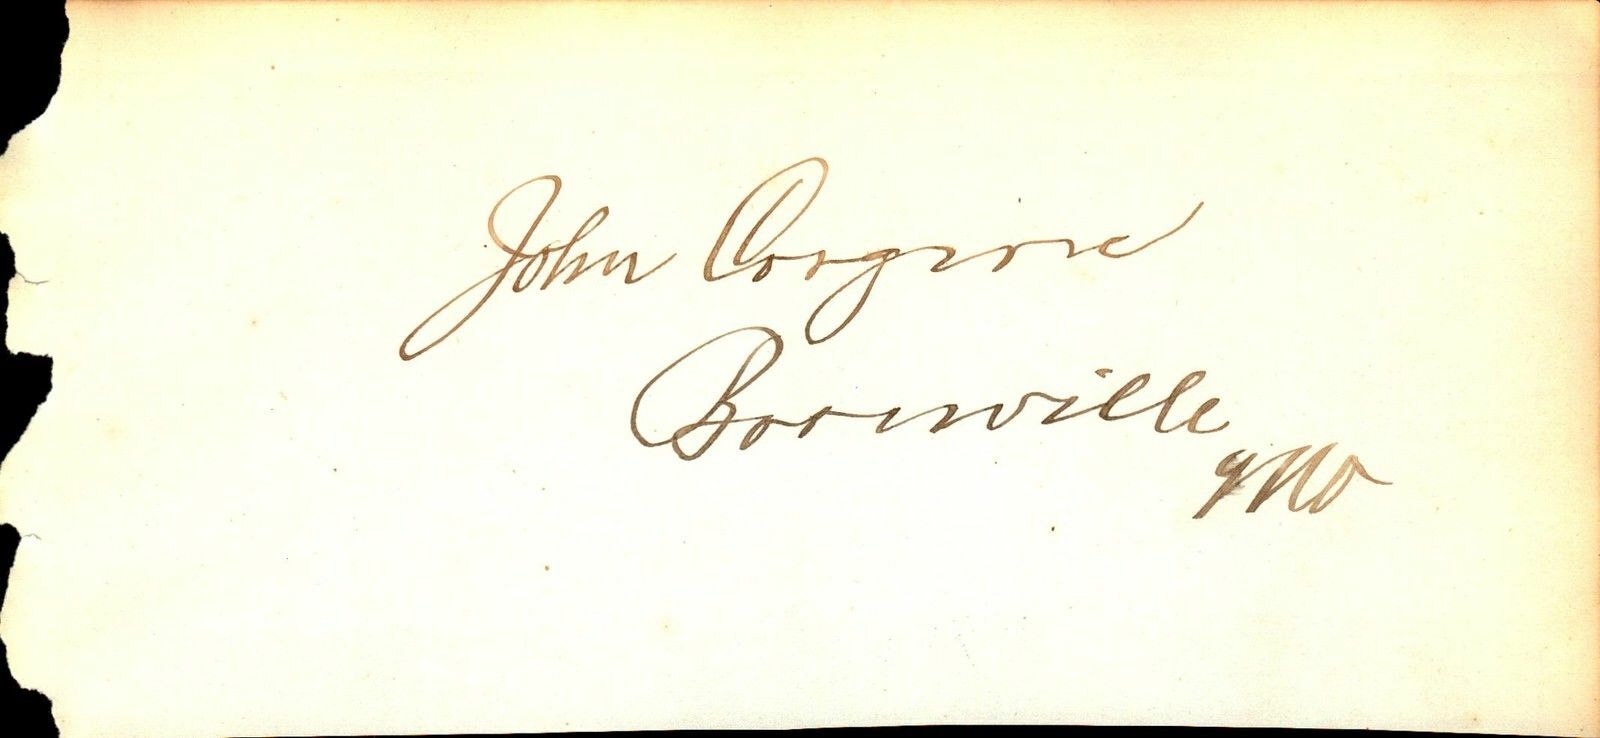 John Cosgrove
Boonville
Mo